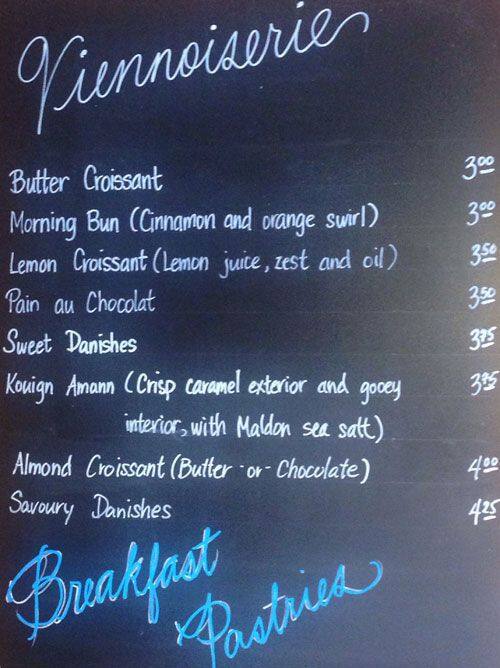 Viennoiserie
Butter Croissant 3.00
Morning Bun (Cinnamon and orange swirl) 3.00
Lemon Croissant (Lemon juice, zest and oil) 3.50
Pain au Chocolat 3.50
Sweet Danishes 3.75
Kouign Amann (Crisp caramel exterior and gooey 3.95
interior, with Maldon sea salt)
Almond Croissant (Butter -or- Chocolate) 4.00
Savoury Danishes 4.25
Breakfast
Pastries